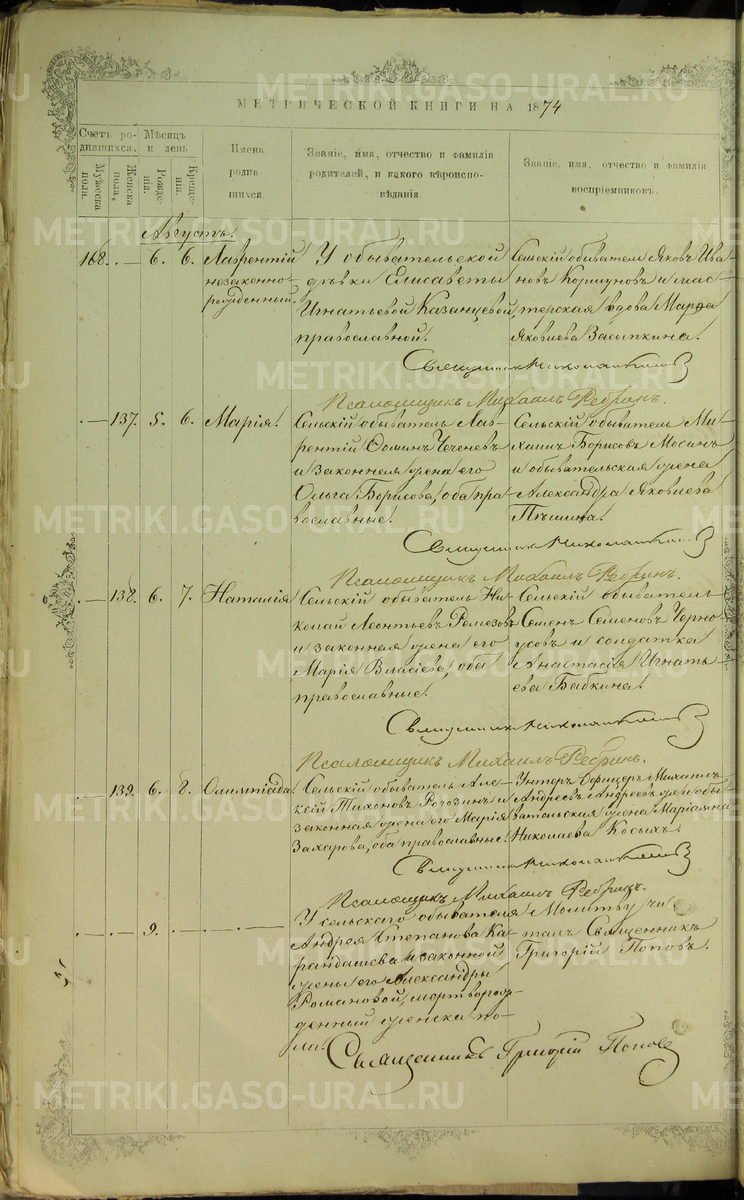 МЕТРИЧЕСКОЙ КНИГИ НА 1874
Счетъ ро-
дившихся.
Мужеска
пола.
Женска
пола.
Мѣсяцъ
и день
Рожде-
нія.
Креще-
нія.
Имена
родив-
шихся.
Званіе, имя, отчество и фамилія
родителей, и какого вѣроиспо-
вѣданія.
Званіе, имя, отчество и фамилія
воспріемниковъ.
Августъ.
168. — 6. 6. Лаврентій
незаконно-
рожденный.
У обывательской
дѣвки Елисаветы
Игнатьевой Казанцевой,
православной.
Сельскій обыватель Яковъ Ива-
новъ Коршуновъ и мас-
терская вдова Марѳа
Яковлева Засыпкина.
Священникъ Николай
Псаломщикъ Михаилъ Ребринъ.
— 137. 5. 6. Марія.
Сельскій обыватель Лав-
рентій Ѳоминъ Чеченевъ
и законная жена его
Ольга Борисова, оба пра-
вославные.
Сельскій обыватель Ми-
хаилъ Борисовъ Мосинъ
и обывательская жена
Александра Яковлева
Священникъ Николай
Псаломщикъ Михаилъ Ребринъ.
— 138. 6. 7. Наталія
Сельскій обыватель Ни-
колай Леонтьевъ Ремезовъ
и законная жена его
Марія Власіева, оба
православные.
Сельскій обыватель
Семенъ Семеновъ Черно-
усовъ и солдатка
Анастасія Игнать-
ева Бабкина.
Священникъ Николай
Псаломщикъ Михаилъ Ребринъ.
— 139. 6. 8. Олимпіада
Сельскій обыватель Але-
ксій Тихоновъ Рогозинъ и
законная жена его Марія
Захарова, оба православные.
Унтеръ Офицеръ Михаилъ
Андреевъ Андреевъ и обы-
вательская жена Маріамна
Николаева Косыхъ.
Священникъ Николай
Псаломщикъ Михаилъ Ребринъ.
— 9. —
У сельскаго обывателя
Андрея Степанова Ка-
рандашева и законной
жены его Александры
Романовой, мертворож-
денный женска по-
ла.
Молитву чи-
талъ Священникъ
Григорій Поповъ.
Священникъ Григорій Поповъ
METRIKI.GASO-URAL.RU